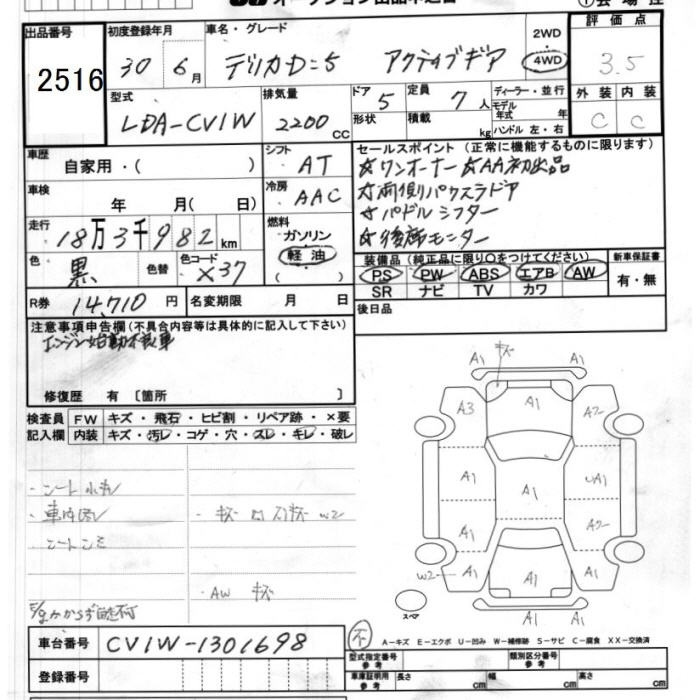 出品番号 2516
初度登録年月 30 6月
車名・グレード デリカD:5 アクティブギア
2WD 4WD
評価点 3.5
外装 C 内装 C
型式 LDA-CV1W
排気量 2200 CC
ドア 5 形状
定員 7人 積載 kg
ディーラー・並行
モデル年式 年
ハンドル 左・右
車歴 自家用・( )
シフト AT
車検 年 月( 日)
冷房 AAC
走行 18万3千982km
燃料 ガソリン 軽油 ( )
色 黒 色替 色コード X37
R券 14,710円 名変期限 月 日
セールスポイント(正常に機能するものに限ります)
☆ワンオーナー ☆AA初出品
☆両側パワスラドア
☆パドルシフター
☆後席モニター
装備品(純正品に限り○をつけてください)
PS PW ABS エアB AW
SR ナビ TV カワ
新車保証書 有・無
後日品
注意事項申告欄(不具合内容等は具体的に記入して下さい)
エンジン始動不良車
修復歴 有〔箇所 〕
検査員記入欄
FW キズ・飛石・ヒビ割・リペア跡・×要
内装 キズ・汚レ・コゲ・穴・スレ・キレ・破レ
・車内汚レ
W2
・AW キズ
キズ
A1 A1
A3 A1 A2
A1 UA1
A1 A1 A2
W2 A1 A1 A1
A1 A1
スペア
不
A-キズ E-エクボ U-凹み W-補修跡 S-サビ C-腐食 XX-交換済
車台番号 CV1W-1301698
登録番号
型式指定番号 参考
類別区分番号 参考
車庫証明用 参考 長さ cm 幅 cm 高さ cm